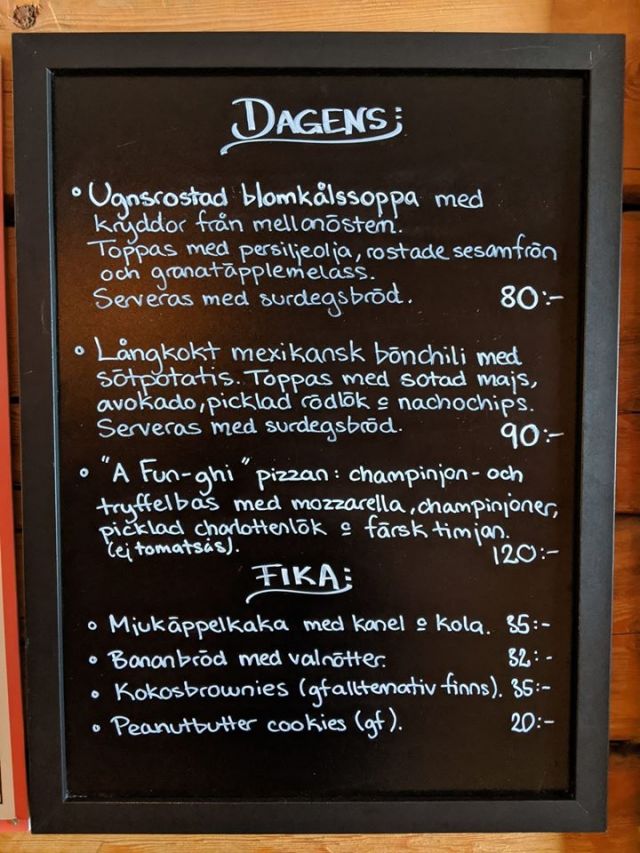 DAGENS:
• Ugnsrostad blomkålssoppa med
kryddor från mellanöstern.
Toppas med persiljeolja, rostade sesamfrön
och granatäpplemelass.
Serveras med surdegsbröd. 80:-
• Långkokt mexikansk bönchili med
sötpotatis. Toppas med sotad majs,
avokado, picklad rödlök o nachochips.
Serveras med surdegsbröd. 90:-
• "A Fun-ghi" pizzan: champinjon- och
tryffelbas med mozzarella, champinjoner,
picklad charlottenlök o färsk timjan.
(ej tomatsås). 120:-
FIKA:
• Mjukäppelkaka med kanel o kola. 35:-
• Bananbröd med valnötter. 32:-
• Kokosbrownies (gfallternativ finns). 35:-
• Peanutbutter cookies (gf). 20:-